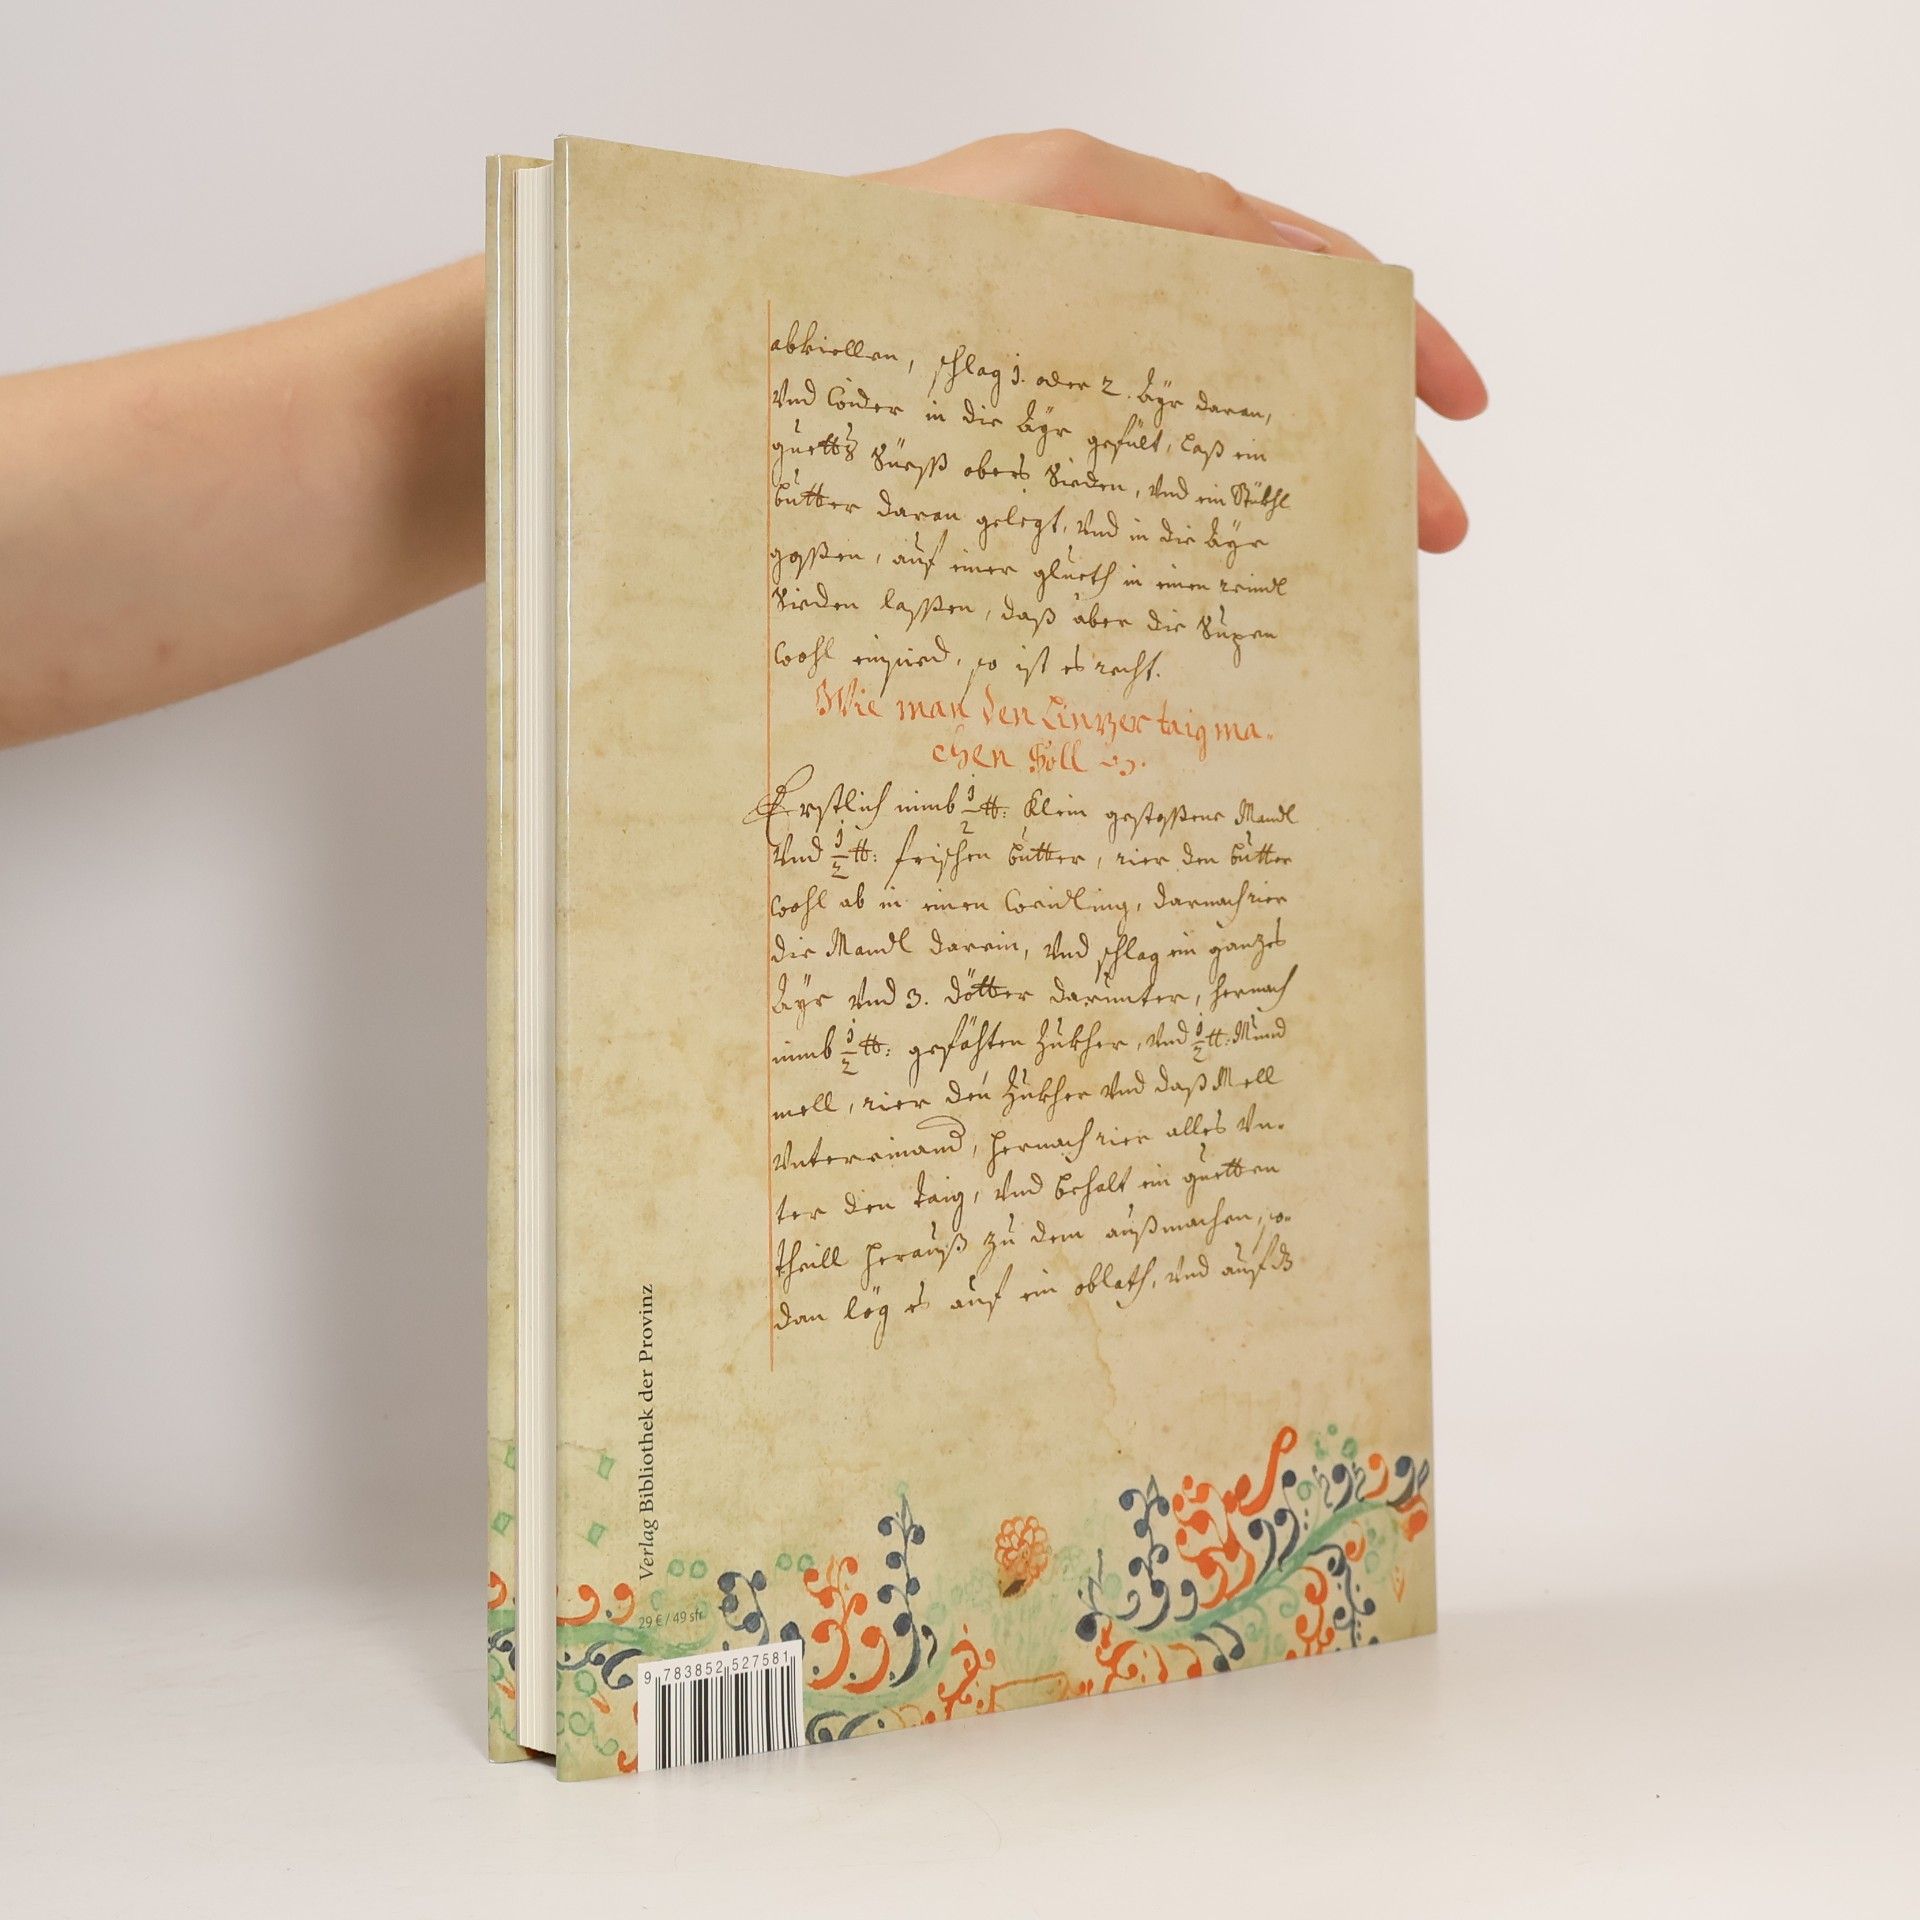 abkiellen, schlag 1. oder 2. Äÿr daran,
Vnd wider in die Äÿr gefült, laß ein
guetts Süeß obers Sieden, Vnd ein Stükhl
butter daran gelegt, Vnd in die Äÿr
goßen, auf einer glueth in einen reindl
Sieden laßen, daß aber die Supen
wohl einsied, so ist es recht.
Wie man den Linzer taig ma-
chen Soll
Erstlich nimb 1/2 ℔: Klein gestoßene Mandl
Vnd 1/2 ℔: frischen butter, rier den butter
wohl ab in einen weidling, darnach rier
die Mandl darein, Vnd schlag ein ganzes
Äÿr Vnd 3. dötter darunter, hernach
nimb 1/2 ℔: gefähten Zukher, Vnd 1/2 ℔: Mund
mell, rier den Zukher Vnd daß Mell
Vntereinand, hernach rier alles Vn-
ter den taig, Vnd behalt ein guetten
theill herauß zu dem außmachen, so-
dan lög es auf ein oblath, Vnd auf
Verlag Bibliothek der Provinz
29 € / 49 sfr
9 783852 527581